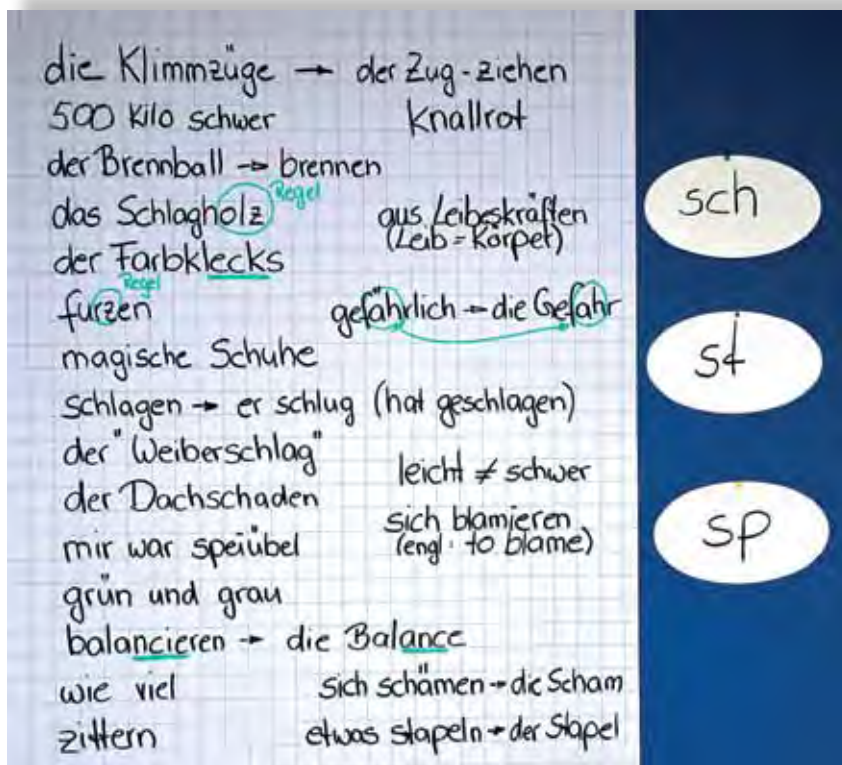 die Klimmzüge → der Zug - ziehen
500 Kilo schwer knallrot
der Brennball → brennen
Regel
das Schlagholz aus Leibeskräften
(Leib = Körper)
der Farbklecks
Regel
furzen gefährlich → die Gefahr
magische Schuhe
schlagen → er schlug (hat geschlagen)
der "Weiberschlag"
leicht ≠ schwer
der Dachschaden
sich blamieren
mir war speiübel (engl. to blame)
grün und grau
balancieren → die Balance
wie viel sich schämen → die Scham
zittern etwas stapeln → der Stapel
sch
st
sp